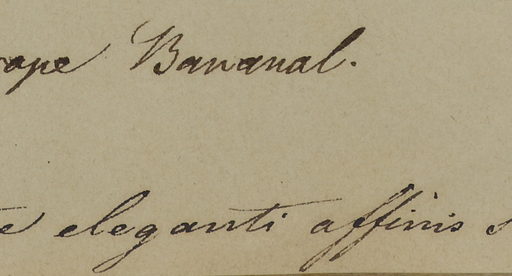 Bananal.
eleganti affinis